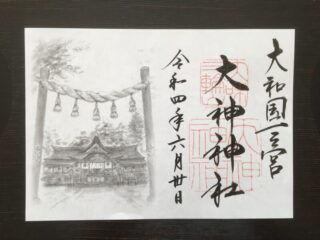 大和国一之宮
大神神社
令和四年六月廿日